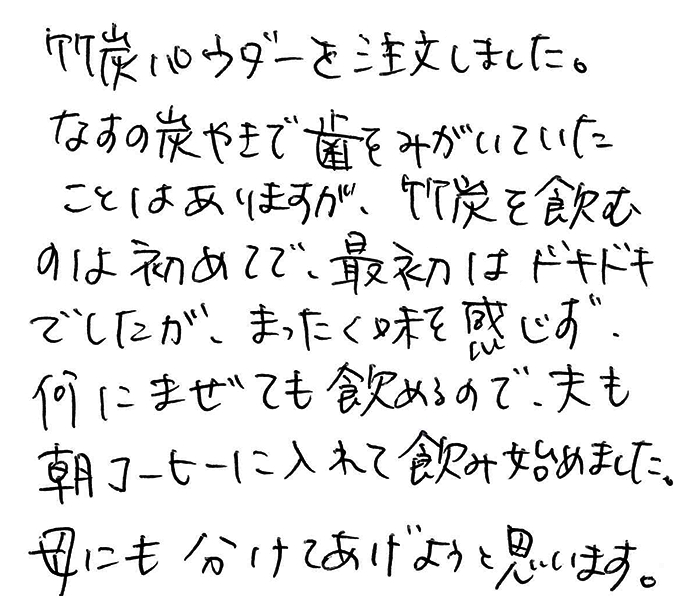 竹炭パウダーを注文しました。
なすの炭やきで歯をみがいていた
ことはありますが、竹炭を飲む
のは初めてで、最初はドキドキ
でしたが、まったく味を感じず、
何にまぜても飲めるので、夫も
朝コーヒーに入れて飲み始めました。
母にも分けてあげようと思います。